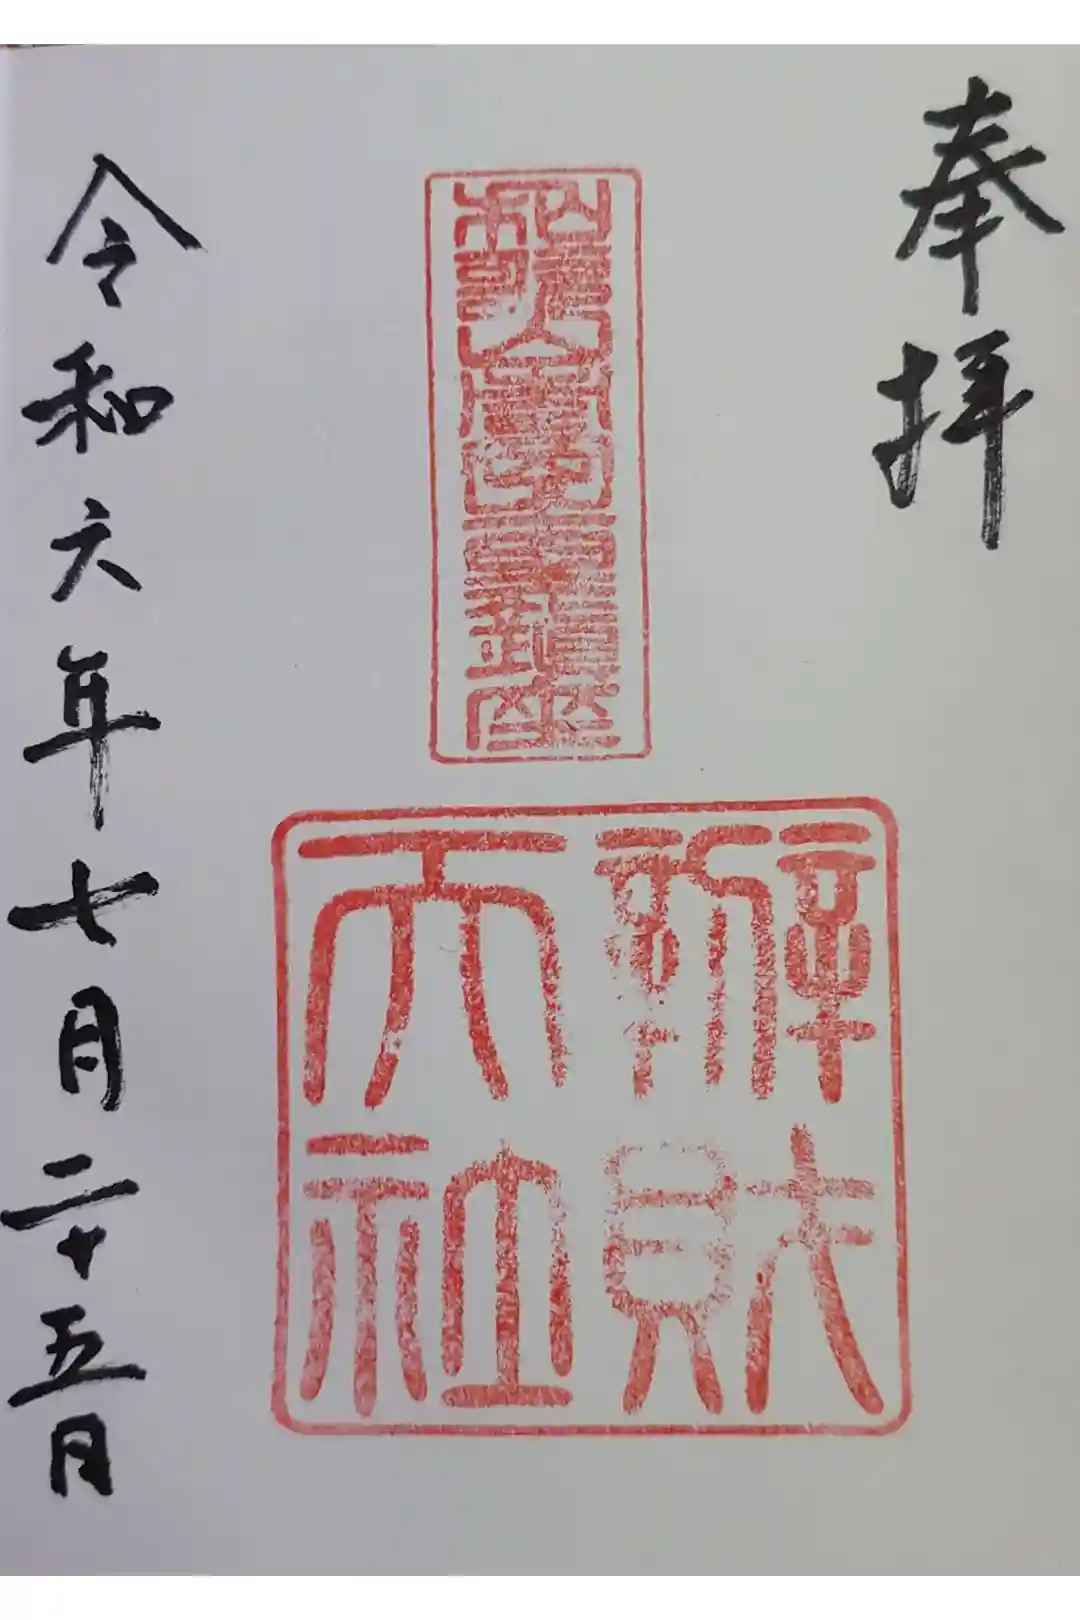 奉拝
辨財
天社
令和六年七月二十五日